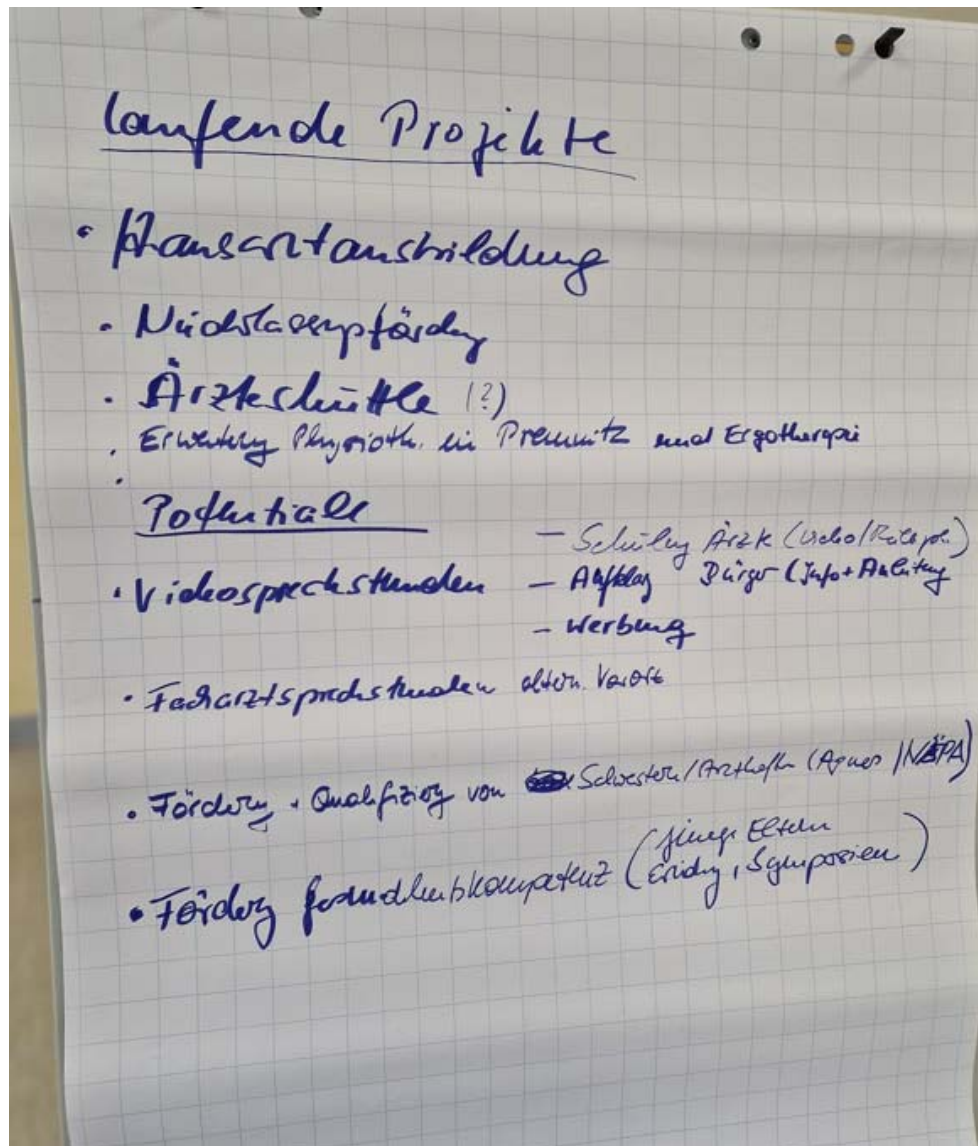 laufende Projekte
· Hausarztausbildung
· Niederlassungsförderung
· Ärzteshuttle (?)
· Erweiterung Physioth. in Premnitz und Ergotherapie
·
Potentiale
· Videosprechstunden
– Schulung Ärzte
– Aufklärung Bürger (Info + Anleitung
– Werbung
· Facharztsprechstunden altern. Vorort
· Förderung + Qualifizierung von Schwestern/Arzthelfer (Agnes / NäPA)
· Förderung Gesundheitskompetenz (junge Eltern
, Symposien)